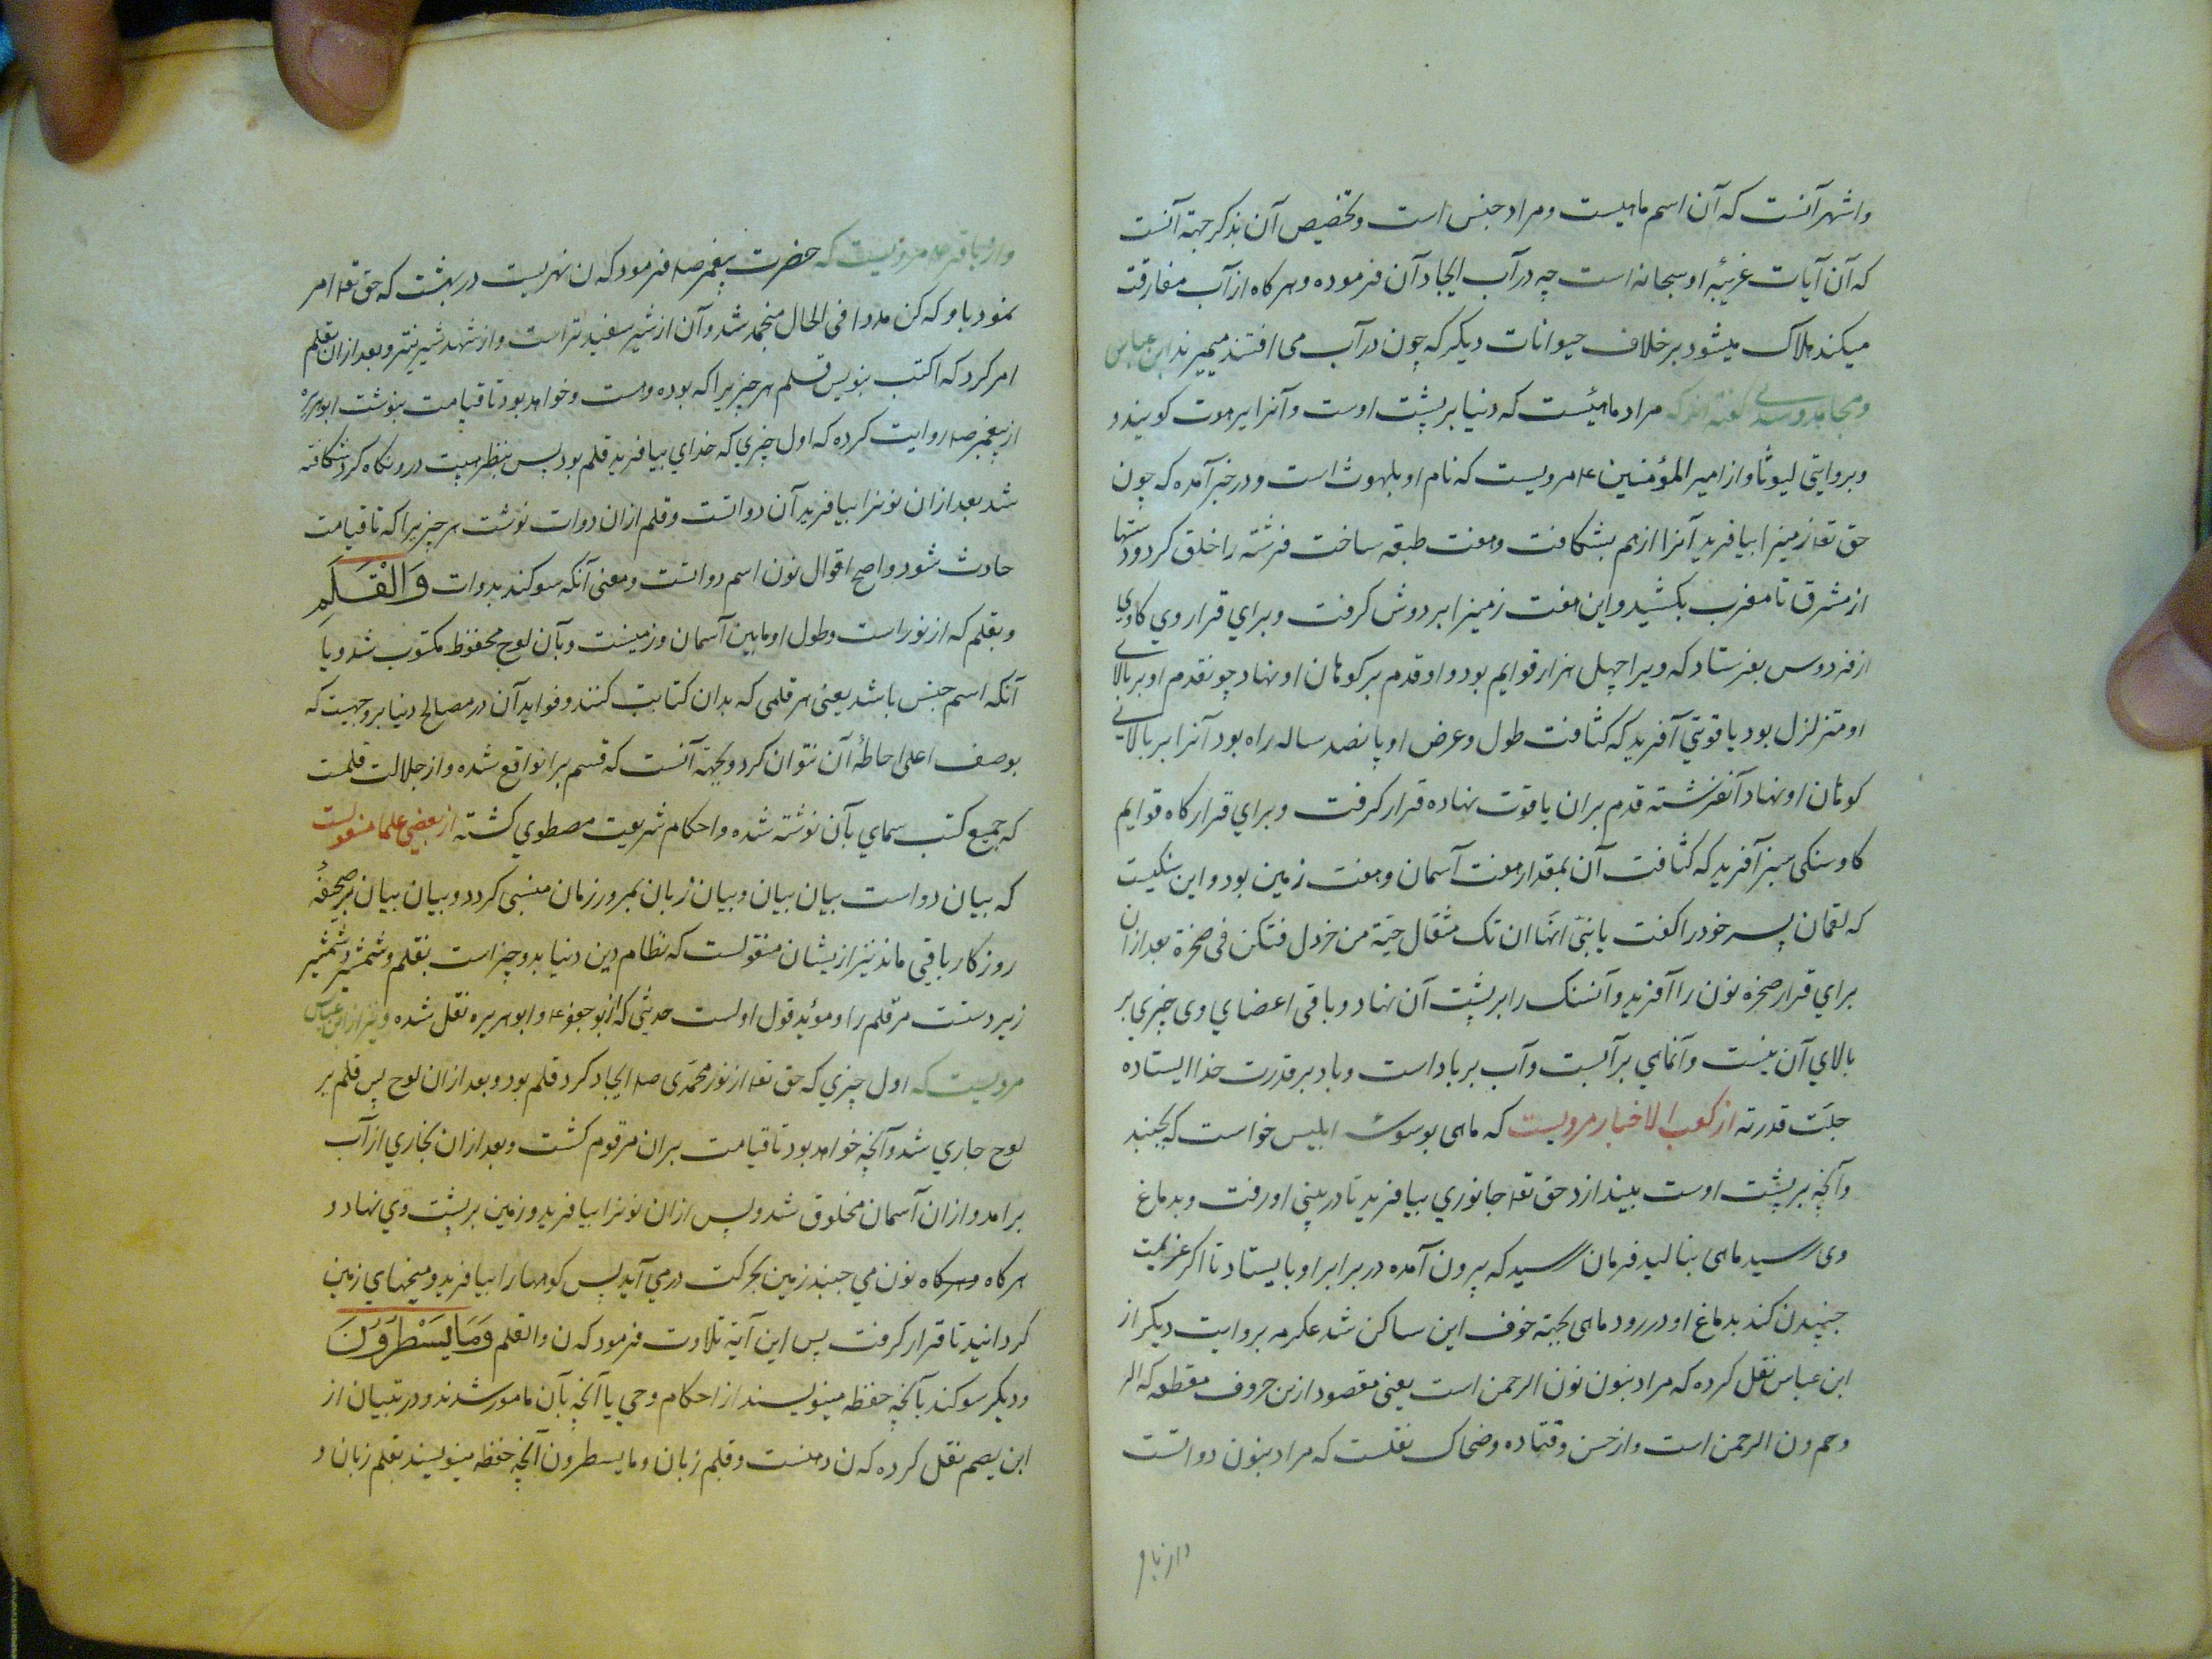 واشهر آنست که آن اسم ماهیست ومراد جنس است وتخصیص آن بذکر جهة آنست
که آن آیات غریبهٔ او سبحانه است چه در آب ایجاد آن فرموده وهرکاه از آب مفارقت
میکند هلاک میشود برخلاف حیوانات دیکر که چون در آب می افتند میمیرند ابن عباس
ومجاهد وسدی کفته اند که مراد ماهیئست که دنیا بر پشت اوست وآنرا یرهوت کویند و
وبروایتی لیوثا واز امیر المؤمنین ع مرویست که نام او بلهوث است ودر خبر آمده که چون
حق تعا زمینرا بیافرید آنرا از هم بشکافت وهفت طبقه ساخت فرشته را خلق کرد ودستها
از مشرق تا مغرب بکشید واین هفت زمینرا بر دوش کرفت وبرای قرار وی کاوی
از فردوس بفرستاد که ویرا چهل هزار قوایم بود واو قدم بر کوهان او نهاد چو نقدم او بر بالای
او متزلزل بود یاقوتی آفرید که کثافت طول وعرض او پانصد ساله راه بود آنرا بر بالای
کوهان او نهاد آنفرشته قدم بران یاقوت نهاده قرار کرفت وبرای قرارکاه قوایم
کاو سنکی سبز آفرید که کثافت آن بمقدار هفت آسمان وهفت زمین بود و این سنکیست
که لقمان پسر خود را کفت یا بنیّ انّها ان تک مثقال حبّة من خردل فتکن فی صخرة بعد ازان
برای قرار صخره نون را آفرید وآنسنک را بر پشت آن نهاد وباقی اعضای وی چیزی بر
بالای آن نیست وآنماهی بر آبست وآب بر باد است وباد بر قدرت خدا ایستاده
جلّت قدرته از کعب الاخبار مرویست که ماهی بوسوسهٔ ابلیس خواست که بجنبد
وآنچه بر پشت اوست بیندازد حق تعا جانوری بیافرید تا در بینی او رفت وبدماغ
وی رسید ماهی بنالید فرمان رسید که بیرون آمده در برابر او بایستاد تا اکر عزیمت
جنبیدن کند بدماغ او در رود ماهی بجهة خوف این ساکن شد عکرمه بروایت دیکر از
ابن عباس نقل کرده که مراد بنون نون الرحمن است یعنی مقصود ازین حروف مقطعه که الر
وحم ون الرحمن است واز حسن وقتاده وضحاک نقلست که مراد بنون دواتست
واز باقر
واز باقر ع مرویست که حضرت پیغمبر صلا فرمود که ن نهریست در بهشت که حق تعا امر
نمود باو که کن مدادا فی الحال منجمد شد وآن از شیر سفیدتر است واز شهد شیرینتر وبعد ازان بقلم
امر کرد که اکتب بنویس قلم هر چیزیرا که بوده وهست وخواهد بود تا قیامت بنوشت ابوهریره
از پیغمبر صلا روایت کرده که اول چیزی که خدای بیافرید قلم بود پس بنظر هیبت درو نکاه کرد شکافته
شد بعد ازان نونرا بیافرید آن دواتست وقلم ازان دوات نوشت هر چیزیرا که تا قیامت
حادث شود واصح اقوال نون اسم دواتست ومعنی آنکه سوکند بدوات وَالْقَلَمِ
وبقلم که از نور است وطول او مابین آسمان وزمینست وبآن لوح محفوظ مکتوب شد ویا
آنکه اسم جنس باشد یعنی هر قلمی که بدان کتابت کنند وفواید آن در مصالح دنیا بروجهیست که
بوصف اعلی احاطهٔ آن نتوان کرد وبجهة آنست که قسم برا نواقع شده واز جلالت قلمست
که جمیع کتب سمای بآن نوشته شده واحکام شریعت مصطوی کشته از بعضی علما منقولست
که بیان دو است بیان بیان وبیان زبان بمرور زمان منسی کردد وبیان بیان بر صحفهٔ
روزکار باقی ماند نیز ازیشان منقولست که نظام دین دنیا بدو چیز است بقلم وشمشیر وشمشیر
زیر دستست مر قلم را و مؤید قول اولست حدیثی که از ابو جعفر ع وابو هریره نقل شده ونیز از ابن عباس
مرویست که اول چیزی که حق تعا از نور محمّدی صلا ایجاد کرد قلم بود وبعد ازان لوح پس قلم بر
لوح جاری شد وآنچه خواهد بود تا قیامت بران مرقوم کشت وبعد ازان بخاری از آب
برامد وازان آسمان مخلوق شد وپس ازان نونرا بیافرید وزمین بر پشت وی نهاد و
هرکاه وهرکاه نون می جنبد زمین بحرکت در می آید پس کوهها را بیافرید ومیخهای زمین
کردانید تا قرار کرفت پس این آیة تلاوت فرمود که ن والقلم وَمَا یَسْطُرُونَ
ودیکر سوکند بآنچه حفظه مینویسند از احکام وحی یا آنچه بآن مامور شدند ودر تبیان از
ابن یصم نقل کرده که ن دهنست وقلم زبان وما یسطرون آنچه حفظه مینویسند بقلم زبان و